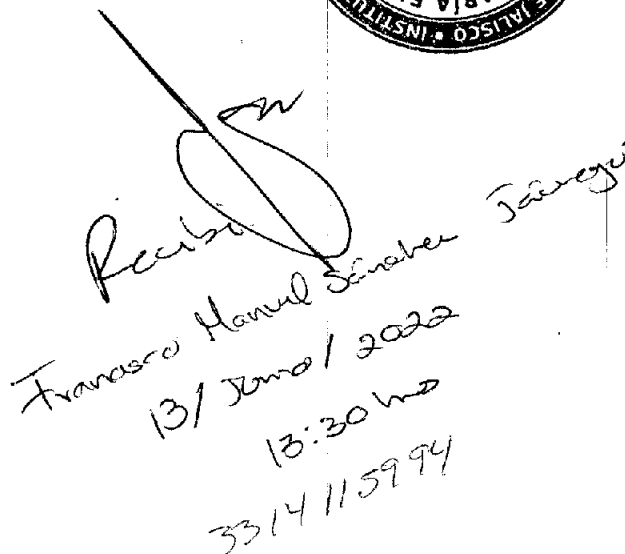 INSTITU
E JALISCO •
Recibí
Francisco Manuel Sánchez Jáuregui
13/Junio/2022
13:30 hrs
3314115994